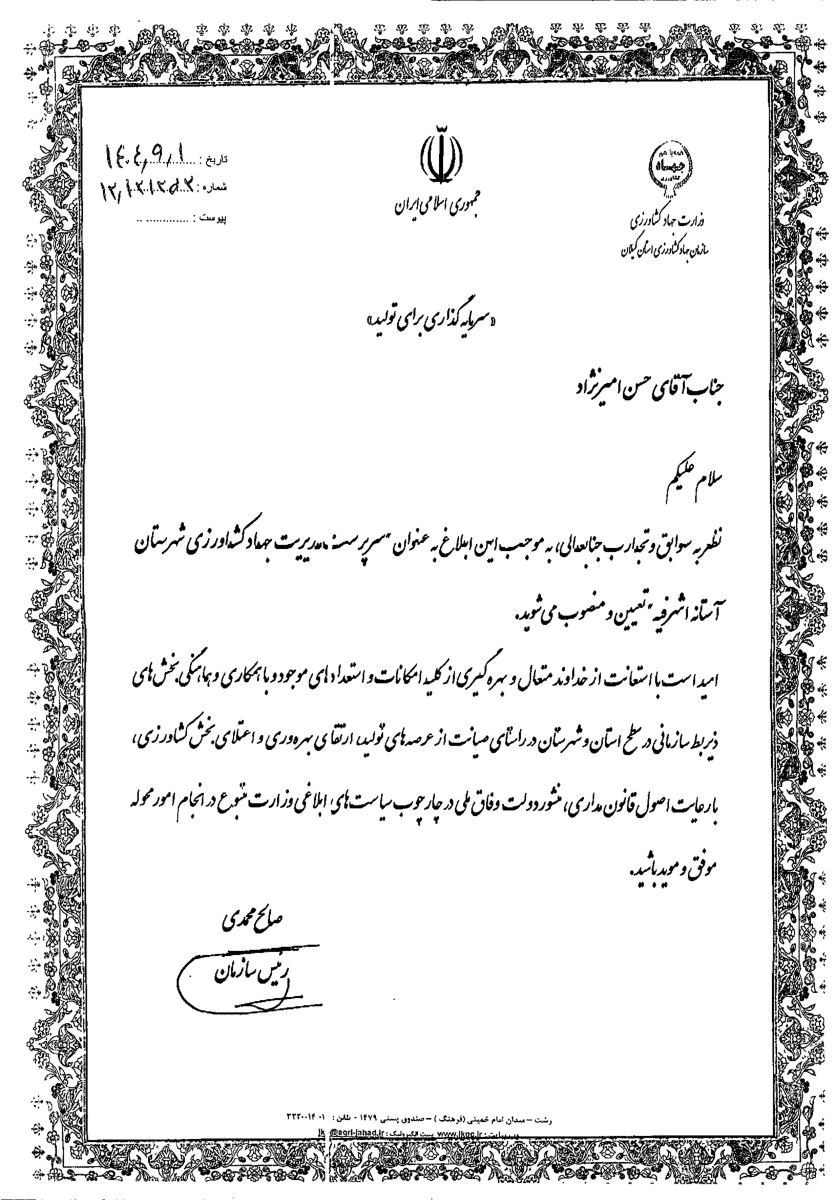 تاریخ : ۱۴۰۴٫۹٫۱
شماره :
پیوست : ............. ..
جمهوری اسلامی ایران
همه با هم
جهاد
کشاورزی
وزارت جهاد کشاورزی
سازمان جهاد کشاورزی استان گیلان
«سرمایه گذاری برای تولید»
جناب آقای حسن امیرنژاد
سلام علیکم
نظر به سوابق و تجارب جنابعالی، به موجب این ابلاغ به عنوان "سرپرست مدیریت جهاد کشاورزی شهرستان
آستانه اشرفیه" تعیین و منصوب می شوید.
امید است با استعانت از خداوند متعال و بهره گیری از کلیه امکانات و استعداد های موجود و با همکاری و هماهنگی بخش های
ذیربط سازمانی در سطح استان و شهرستان در راستای صیانت از عرصه های تولید، ارتقای بهره وری و اعتلای بخش کشاورزی،
با رعایت اصول قانون مداری، منشور دولت وفاق ملی در چارچوب سیاست های ابلاغی وزارت متبوع در انجام امور محوله
موفق و موید باشید.
صالح محمدی
رئیس سازمان
رشت – میدان امام خمینی (فرهنگ ) – صندوق پستی ۱۴۷۹ - تلفن : ۰۱-۳۳۲۰۰۱۴
وب سایت : www.jkgc.ir پست الکترونیک : jk @agri-jahad.ir